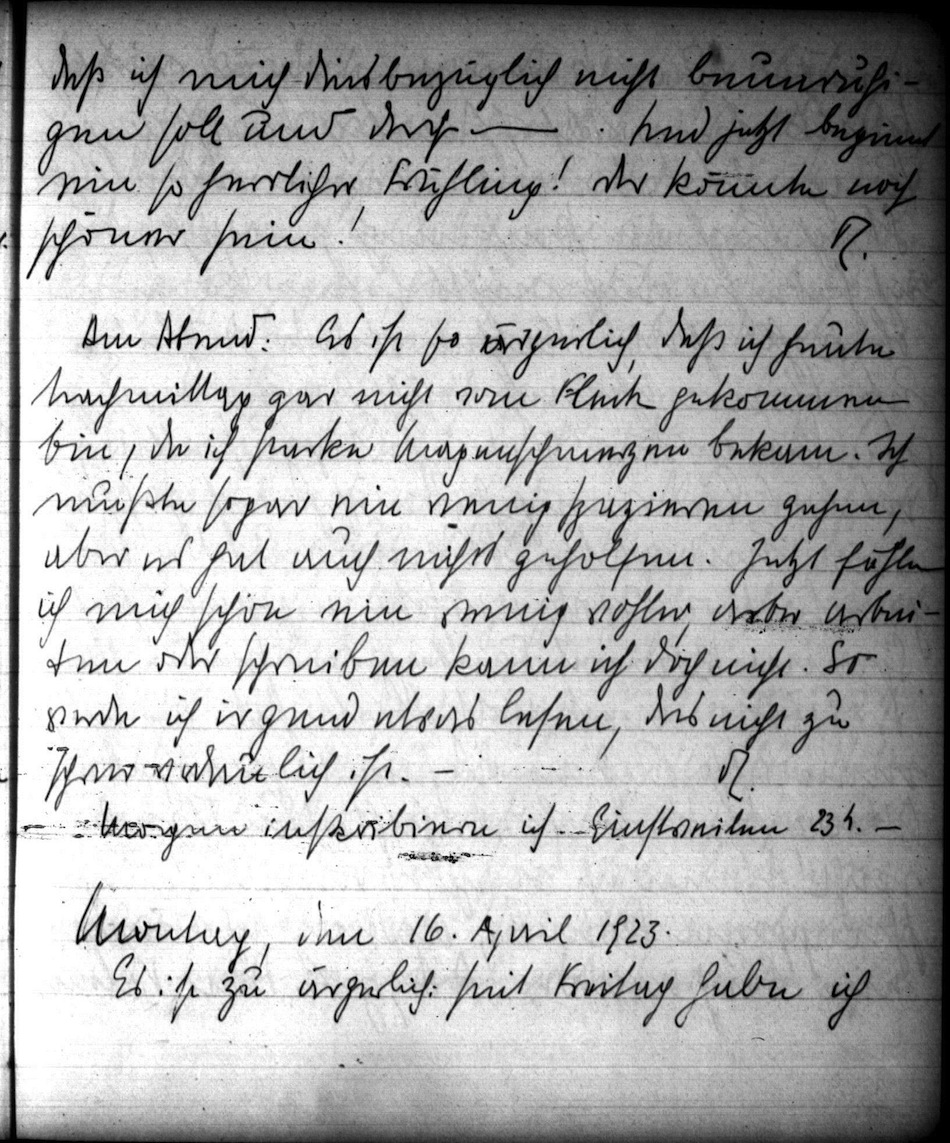 daß ich mich diesbezüglich nicht beunruhi-
gen soll und doch — . Und jetzt beginnt
ein so herrlicher Frühling! Der könnte noch
schöner sein!
Am Abend. Es ist so ärgerlich, daß ich heute
Nachmittag gar nicht vom Fleck gekommen
bin, da ich starke Magenschmerzen bekam. Ich
mußte sogar ein wenig spazieren gehen,
aber es hat auch nichts geholfen. Jetzt fühle
ich mich schon ein wenig wohler, aber arbei-
ten oder schreiben kann ich doch nicht. So
werde ich irgend etwas lesen, das nicht zu
schwer verdaulich ist. –
Morgen inskribiere ich. Einstweilen 23 h. –
Montag, den 16. April 1923.
Es ist zu ärgerlich: seit Freitag habe ich